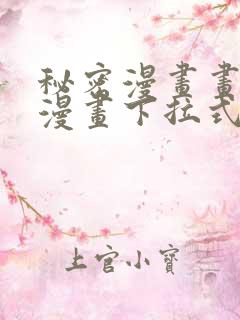 秘密漫畫畫
漫畫下拉式
上官小寶